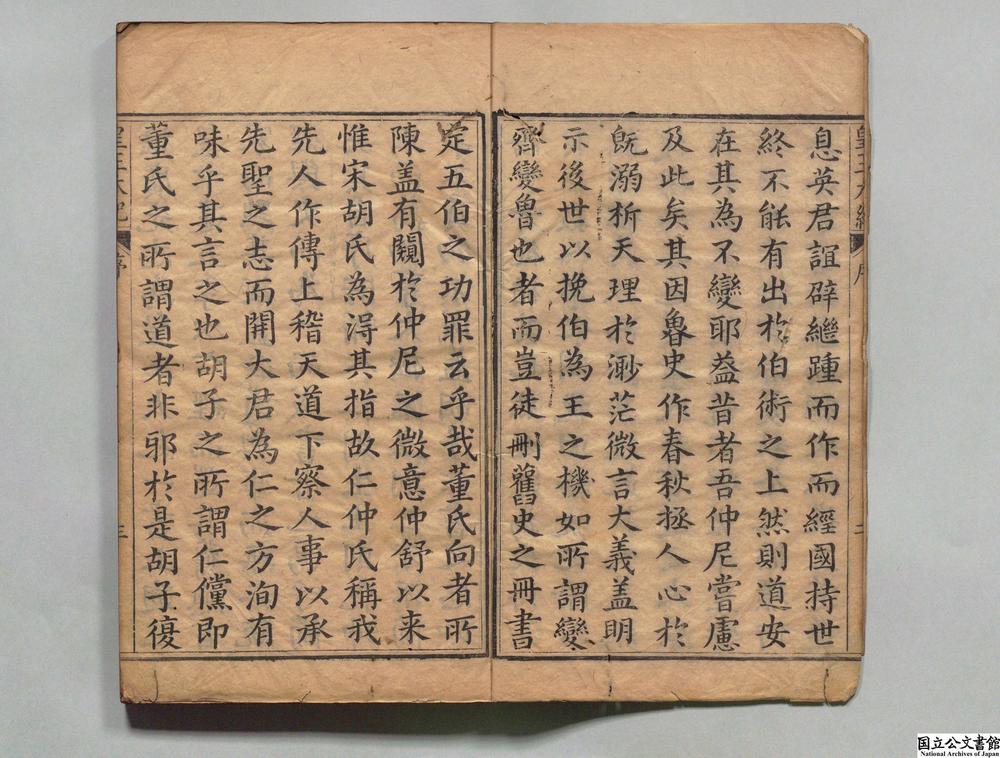 息英君誼辟繼踵而作而經國持世
終不能有出於伯術之上然則道安
在其為不變耶葢昔者吾仲尼嘗慮
及此矣其因魯史作春秋拯人心於
旣溺析天理於渺茫微言大義盖明
示後世以挽伯為王之機如所謂變
齊變魯也者而豈徒刪舊史之冊書
定五伯之功罪云乎哉董氏向者所
陳盖有闚於仲尼之微意仲舒以来
惟宋胡氏為淂其指故仁仲氏稱我
先人作傳上稽天道下察人事以承
先聖之志而開大君為仁之方洵有
味乎其言之也胡子之所謂仁儻即
董氏之所謂道者非邪於是胡子復
序
二
序
三
国立公文書館
National Archives of Japan